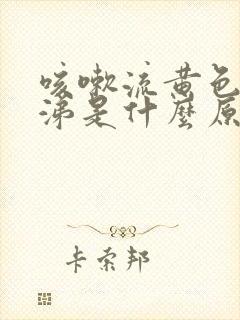 咳嗽流黄色
涕是什麼原
卡索邦